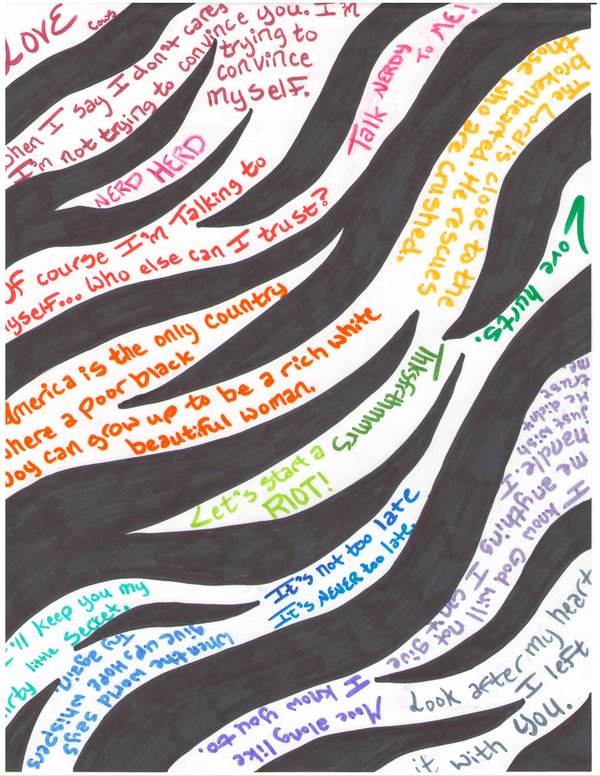 LOVE
cows
when I say I don't care,
I'm not trying to convince you. I'm
trying to
convince
myself.
Talk NERDY TO ME!
NERD HERD
The Lord is close to the
brokenhearted. He rescues
those who are crushed.
Of course I'm Talking to
myself... Who else can I trust?
Love hurts.
America is the only country
where a poor black
boy can grow up to be a rich white
beautiful woman.
Thksfrthmmrs
Let's start a
RIOT!
I know God will not give
me anything I can't
handle. I
just wish
He didn't
trust
It's not too late
It's NEVER too late.
I'll keep you my
dirty little secret.
When the world says
give up, Hope whispers
Try again.
Move along like
I know you to.
Look after my heart
I left
it with you.